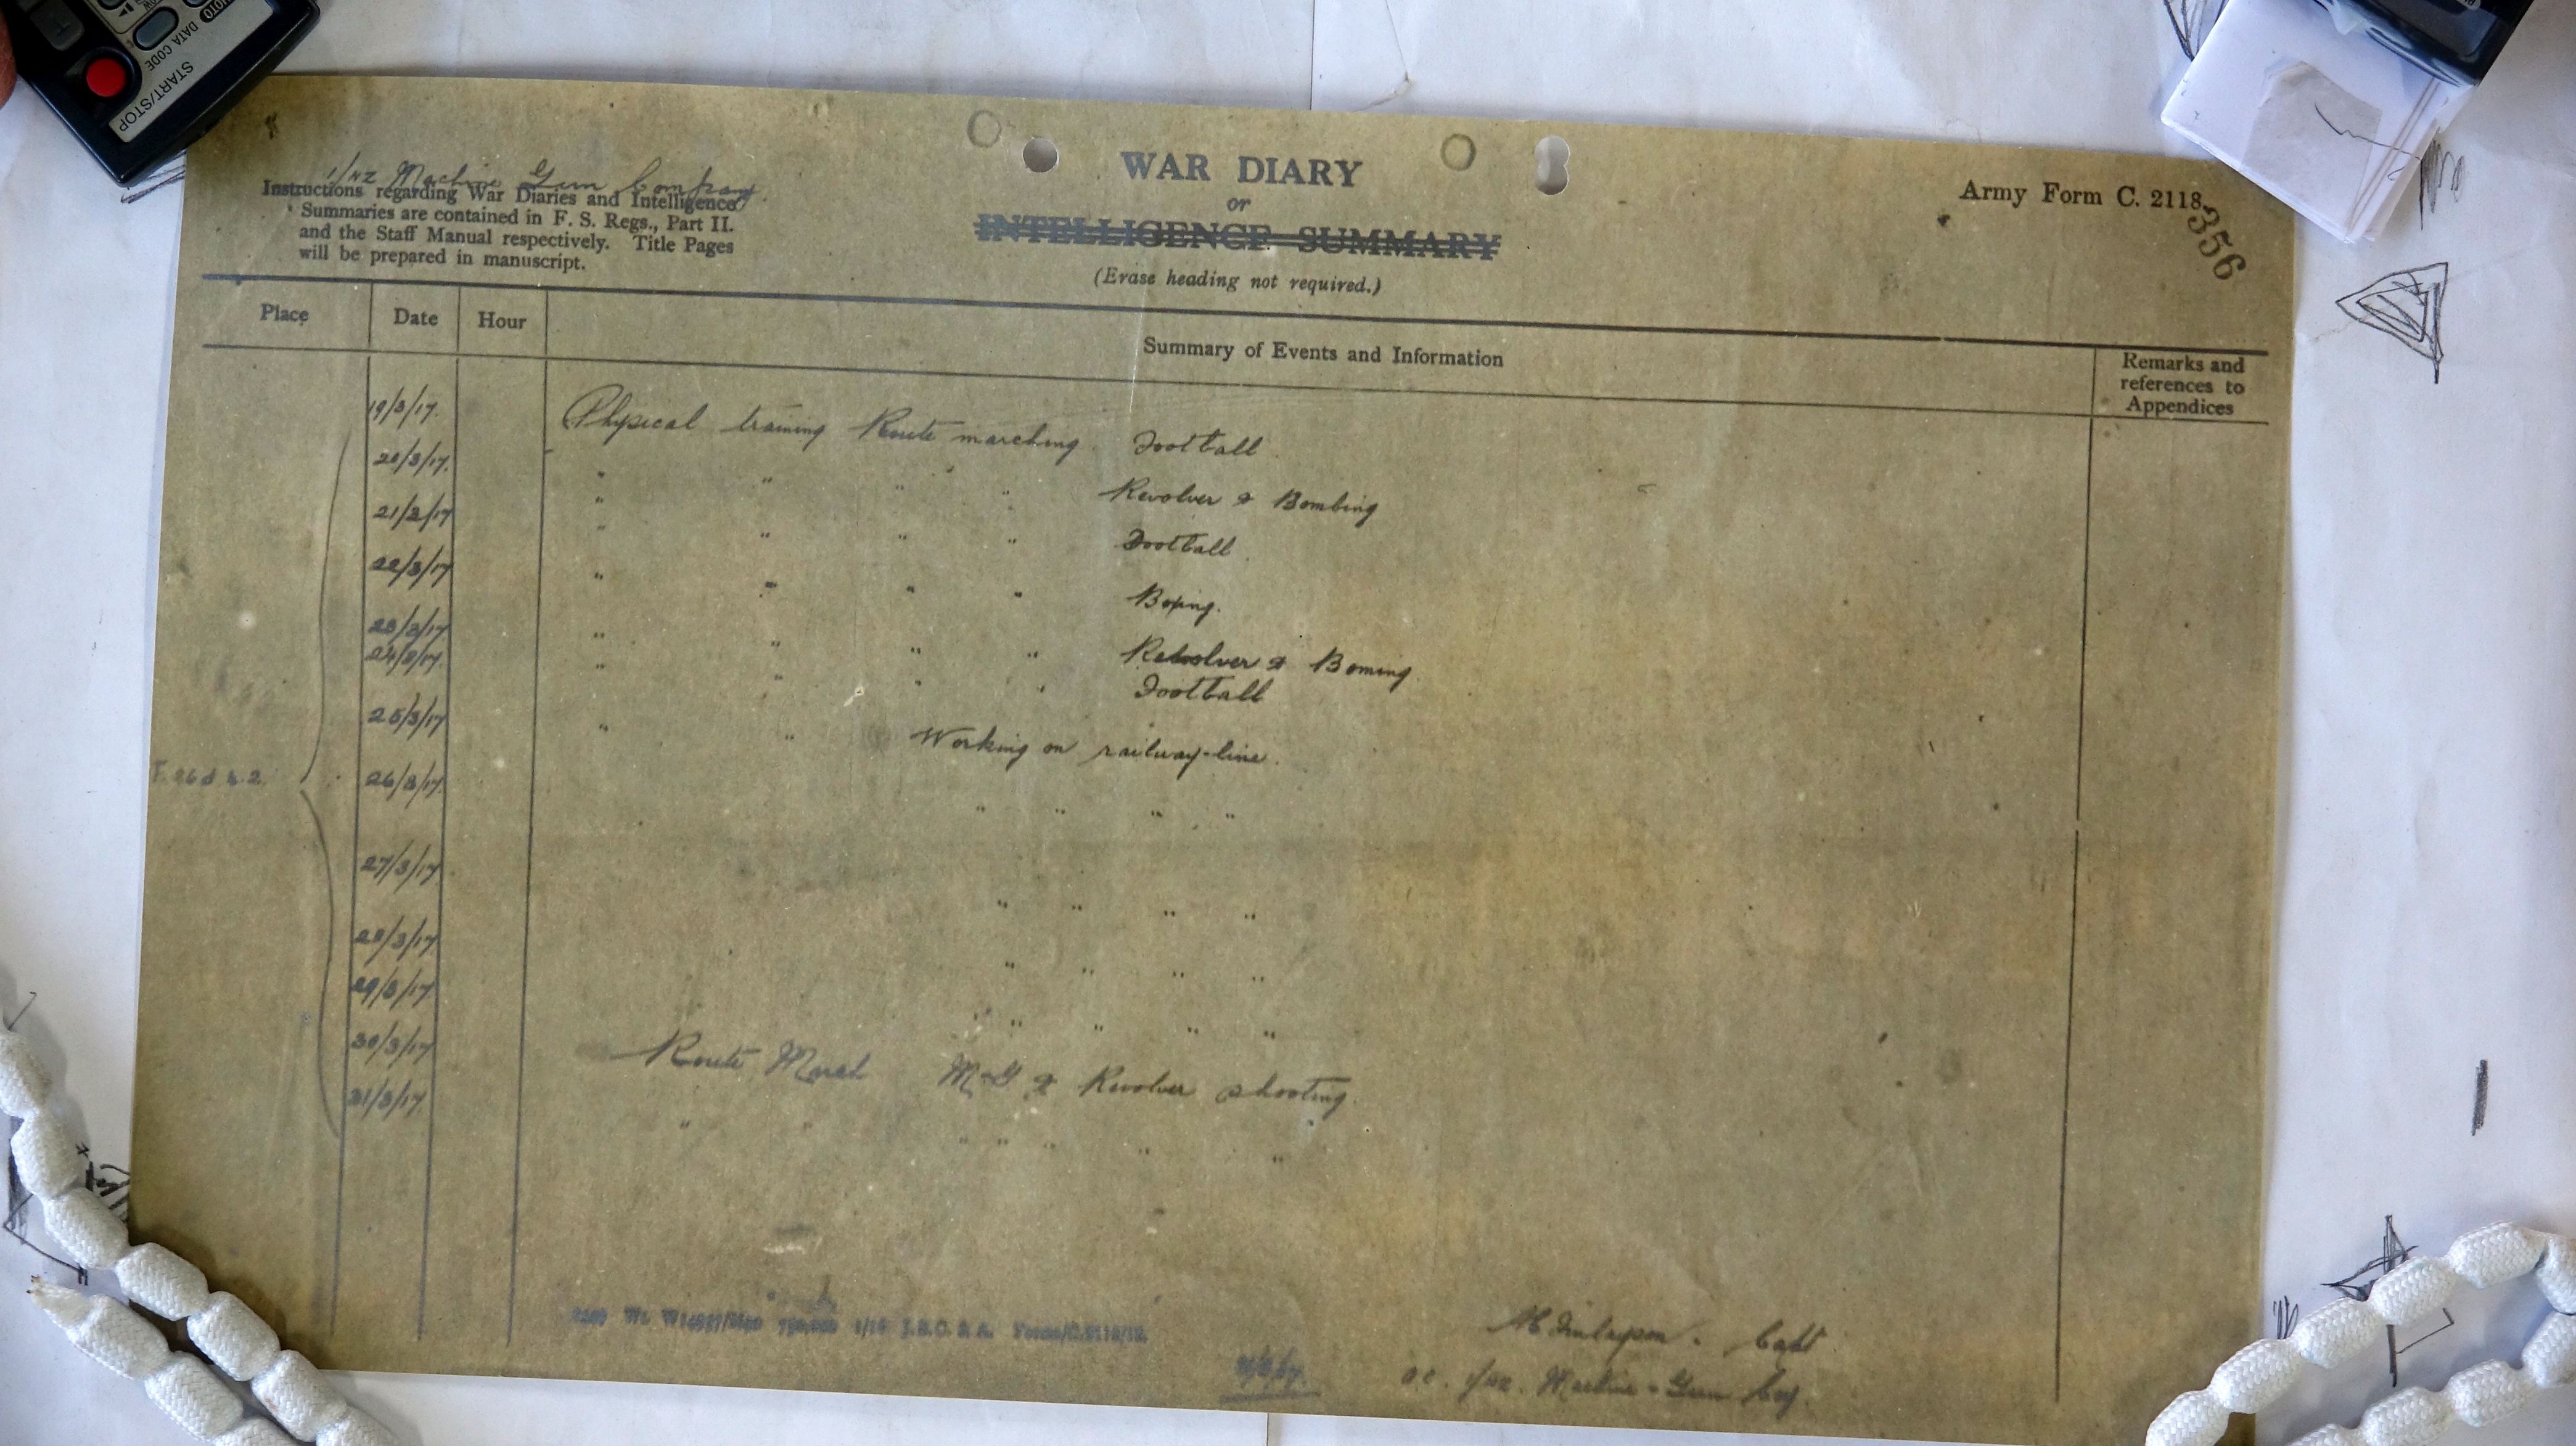 START/STOP
DATA CODE
PHOTO
1/42 Machine Gun Company
Instructions regarding War Diaries and Intelligence
Summaries are contained in F. S. Regs., Part II.
and the Staff Manual respectively. Title Pages
will be prepared in manuscript.
WAR DIARY
or
INTELLIGENCE SUMMARY
(Erase heading not required.)
Army Form C. 2118.
356
Place Date Hour Summary of Events and Information Remarks and
references to
Appendices
19/3/17. Physical training Route marching Football
20/3/17. " " " " Revolver & Bombing
21/3/17 " " " " Football
22/3/17 " " " " Boxing.
23/3/17 " " " " Revolver & Boming
24/3/17. " " " " Football
25/3/17 " " Working on railway-line.
26/3/17 " " " "
27/3/17 " " " "
28/3/17 " " " "
29/3/17 " " " "
30/3/17 Route March M-G & Revolver shooting.
31/3/17. " " " " " "
1/16 J.B.C. & A. Forms/C.2118/12.
Finlayson. Capt
O.C. 1/42. Machine-Gun Coy.